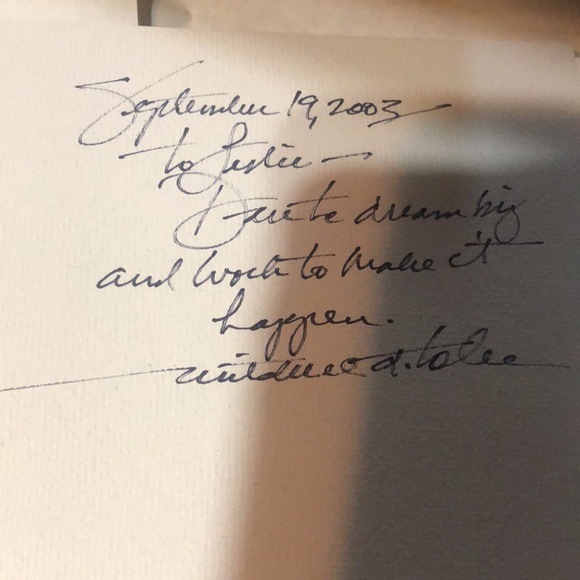 September 19, 2003
to Leslie —
Dare to dream big
and work to make it
happen.
mildred d. taylor